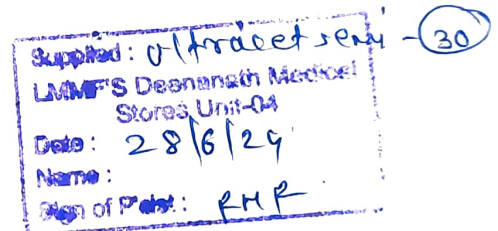 Supplied: Ultracet semi - 30
LMMF'S Deenanath Medical
Stores Unit-04
Date: 28/6/24
Name:
Sign of P'cist: